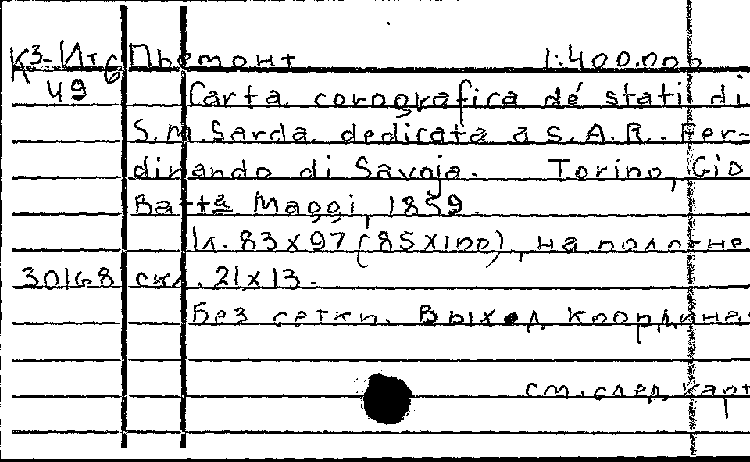 К3-Ите Пьемонт 1:400.000
49 Carta corografica dé stati di
S.M. Sarda dedicata a S.A.R. Fer-
dinando di Savoja. Torino, Gio
Batta Maggi, 1859.
1л. 83x97 (85x100), на полотне
30168 скл. 21x13.
Без сетки. Выход координа
см. след. карт